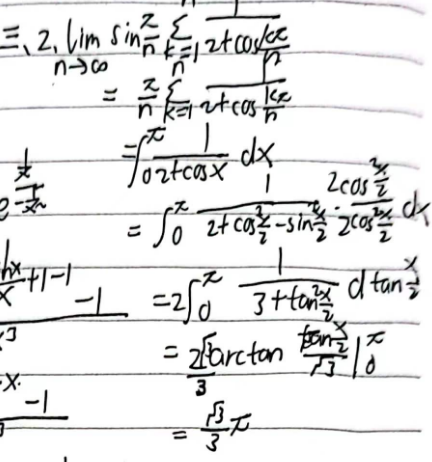 三、2、lim n→∞ sin π/n Σ k=1 n 1/(2+cos kπ/n)
= π/n Σ k=1 n 1/(2+cos kπ/n)
= ∫0 π 1/(2+cosx) dx
= ∫0 π 1/(2+cos²x/2-sin²x/2) · 2cos²x/2 / 2cos²x/2 dx
+1-1
= 2∫0 π 1/(3+tan²x/2) d tan x/2
-1
= 2√3/3 arctan (tan x/2)/√3 |0 π
-1
= √3/3 π